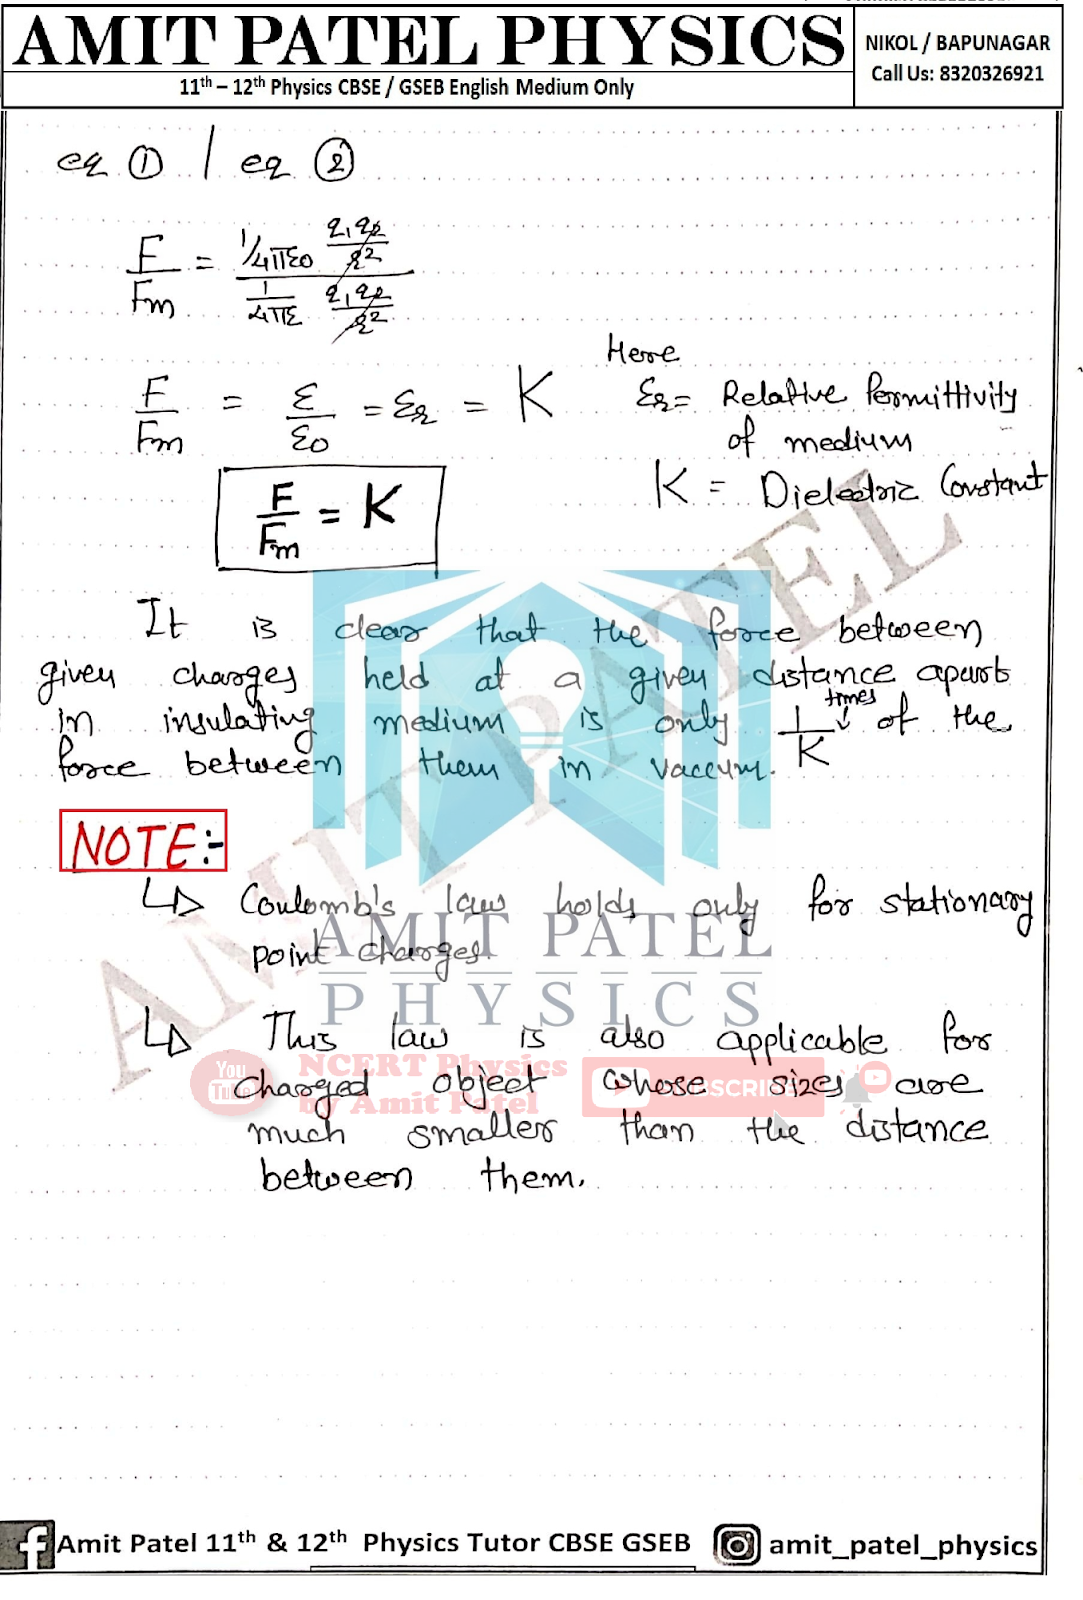 AMIT PATEL PHYSICS
11th – 12th Physics CBSE / GSEB English Medium Only
NIKOL / BAPUNAGAR
Call Us: 8320326921
eq ① / eq ②
F/Fm = (1/4πε0 q1q2/r²) / (1/4πε q1q2/r²)
F/Fm = ε/ε0 = εr = K
Here
εr = Relative Permittivity
of medium
K = Dielectric Constant
F/Fm = K
It is clear that the force between
given charges held at a given distance apart
in insulating medium is only 1/K times of the
force between them in vaccum.
NOTE:-
↳ Coulomb's law holds only for stationary
point charges
↳ This law is also applicable for
charged object whose sizes are
much smaller than the distance
between them.
AMIT PATEL
AMIT PATEL
PHYSICS
You
Tube
NCERT Physics
by Amit Patel
SUBSCRIBE
Amit Patel 11th & 12th Physics Tutor CBSE GSEB
amit_patel_physics